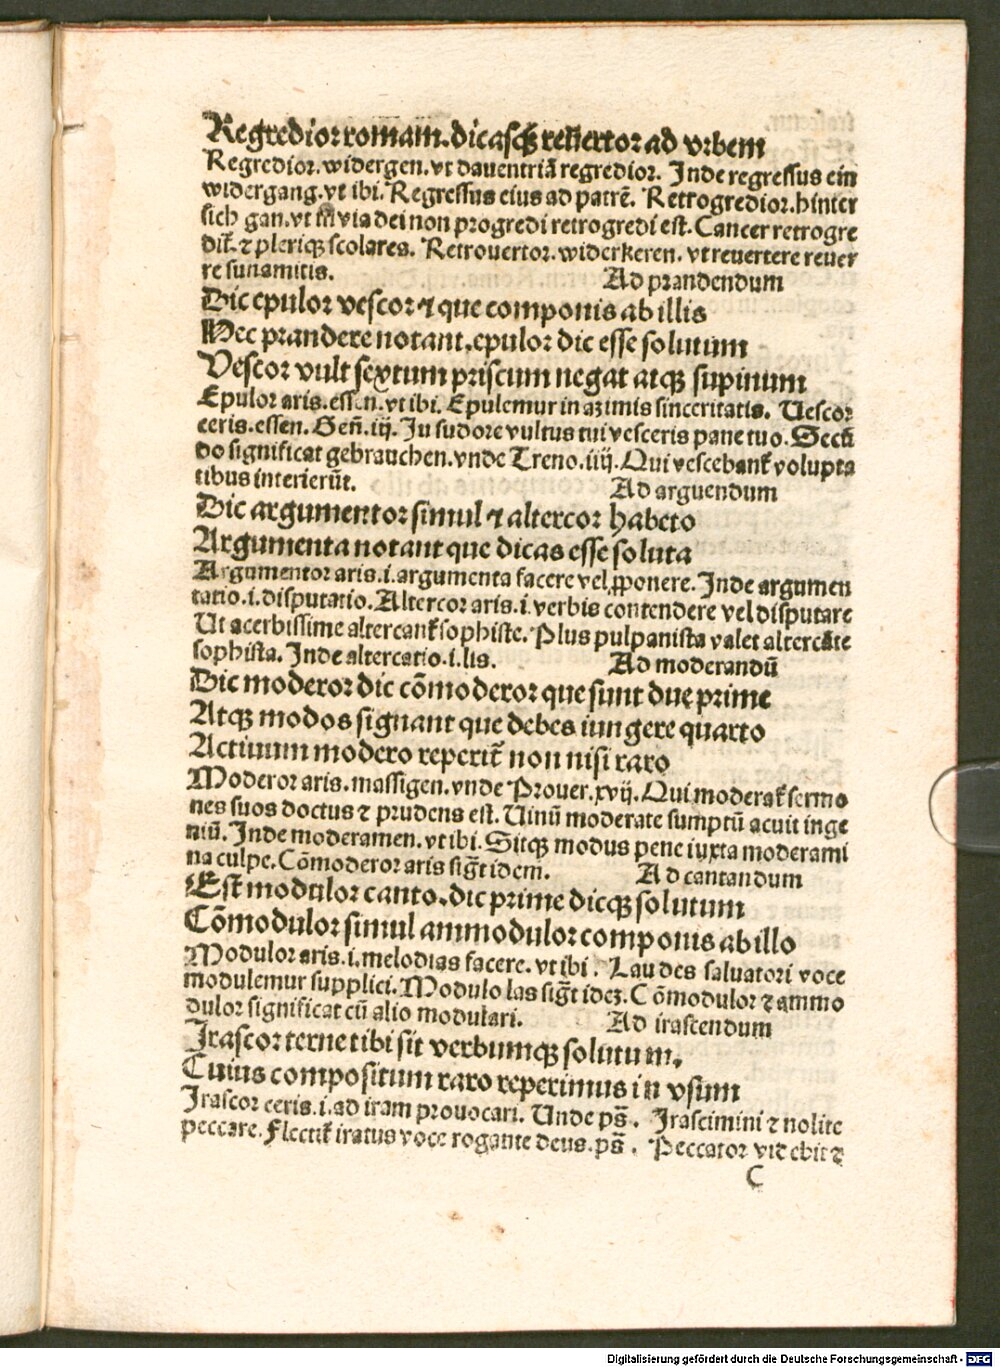 Regredior romam. dicasqȝ reuertor ad vrbem
Regredior. widergen. vt dauentriā regredior. Inde regressus ein
widergang. vt ibi. Regressus eius ad patrē. Retrogredior. hinter
sich gan. vt in via dei non progredi retrogredi est. Cancer retrogre
dit̄. ⁊ pleriqȝ scolares. Retrouertor. widerkeren. vt reuertere reuer
re sunamitis. Ad prandendum
Dic epulor vescor ⁊ que componis ab illis
Hec prandere notant. epulor dic esse solutum
Vescor vult sextum priscum negat atqȝ supinum
Epulor aris. essen. vt ibi. Epulemur in azimis sinceritatis. Uescor
ceris. essen. Geñ. iij. In sudore vultus tui vesceris pane tuo. Secū
do significat gebrauchen. vnde Treno. iiij. Qui vescebant̄ volupta
tibus interierūt. Ad arguendum
Dic argumentor simul ⁊ altercor habeto
Argumenta notant que dicas esse soluta
Argumentor aris. i. argumenta facere vel ꝓponere. Inde argumen
tatio. i. disputatio. Altercor aris. i. verbis contendere vel disputare
Ut acerbissime altercant̄ sophiste. Plus pulpanista valet altercāte
sophista. Inde altercatio. i. lis. Ad moderandū
Dic moderor dic cōmoderor que sunt due prime
Atqȝ modos signant que debes iungere quarto
Actiuum modero reperit̄ non nisi raro
Moderor aris. massigen. vnde Prouer. xvij. Qui moderat̄ sermo
nes suos doctus ⁊ prudens est. Uinū moderate sumptū acuit inge
niū. Inde moderamen. vt ibi. Sitqȝ modus pene iuxta moderami
na culpe. Cōmoderor aris sig̃t idem. Ad cantandum
Est modulor canto. dic prime dicqȝ solutum
Cōmodulor simul ammodulor componis ab illo
Modulor aris. i. melodias facere. vt ibi. Laudes saluatori voce
modulemur supplici. Modulo las sig̃t ideȝ. Cōmodulor ⁊ ammo
dulor significat cū alio modulari. Ad irascendum
Irascor terne tibi sit verbumqȝ solutum.
Cuius compositum raro reperimus in vsum
Irascor ceris. i. ad iram prouocari. Unde ps̄. Irascimini ⁊ nolite
peccare. Flectit̄ iratus voce rogante deus. ps̄. Peccator videbit ⁊
C
Digitalisierung gefördert durch die Deutsche Forschungsgemeinschaft - DFG